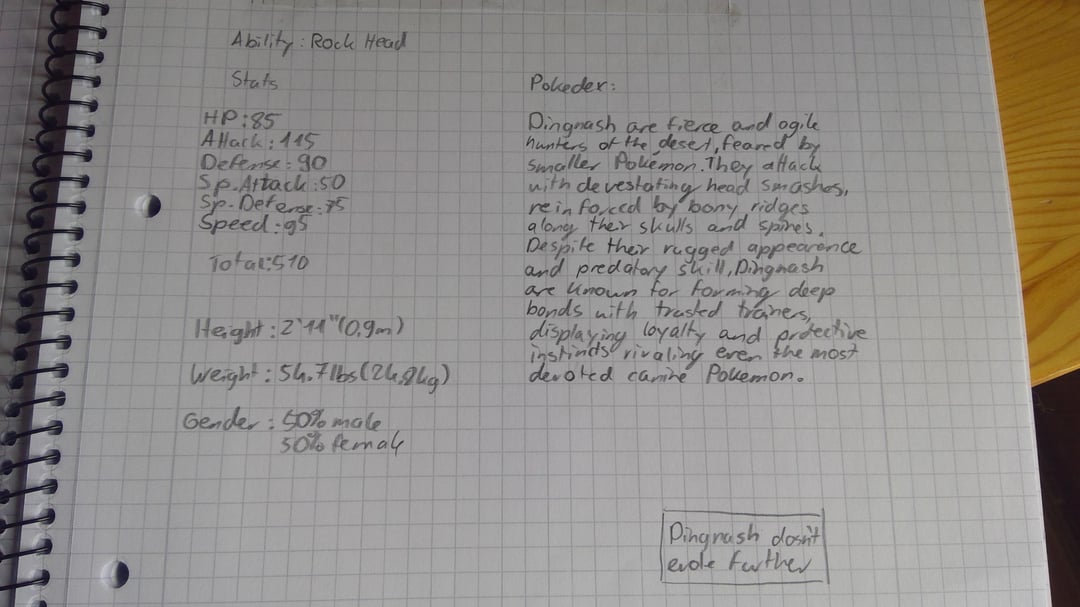 Ability: Rock Head
Stats
HP: 85
Attack: 115
Defense: 90
Sp. Attack: 50
Sp. Defense: 75
Speed: 95
Total: 510
Height: 2'11" (0,9m)
Weight: 54.7 lbs (24,8kg)
Gender: 50% male
50% female
Pokedex:
Dingnash are fierce and agile
hunters of the desert, feared by
smaller Pokémon. They attack
with devestating head smashes,
reinforced by bony ridges
along their skulls and spines.
Despite their rugged appearence
and predatory skill, Dingnash
are known for forming deep
bonds with trusted trainers,
displaying loyalty and protective
instincts rivaling even the most
devoted canine Pokemon.
Dingnash dosn't
evole further